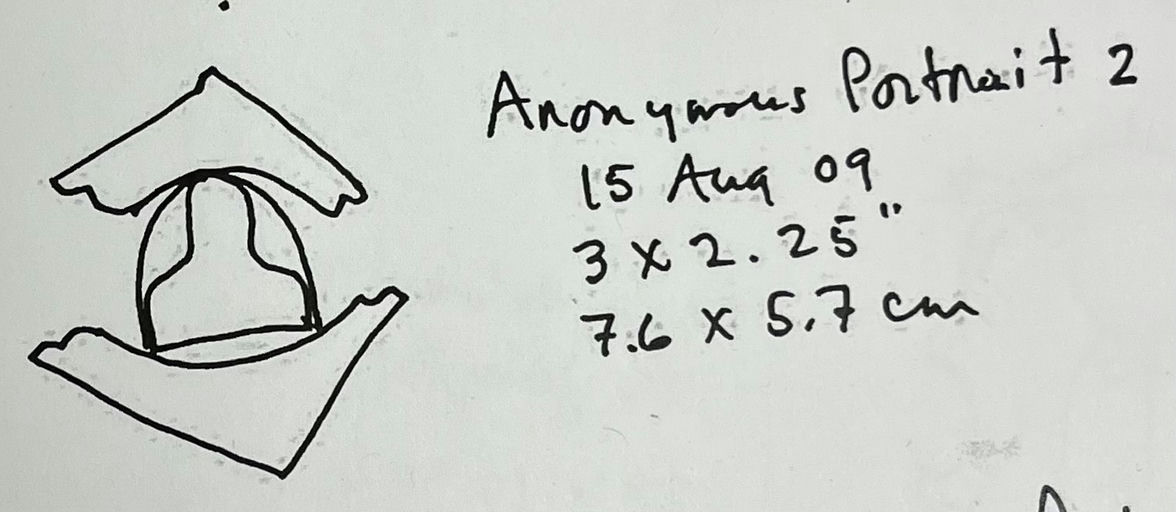 Anonymous Portrait 2
15 Aug 09
3 x 2.25"
7.6 x 5.7 cm